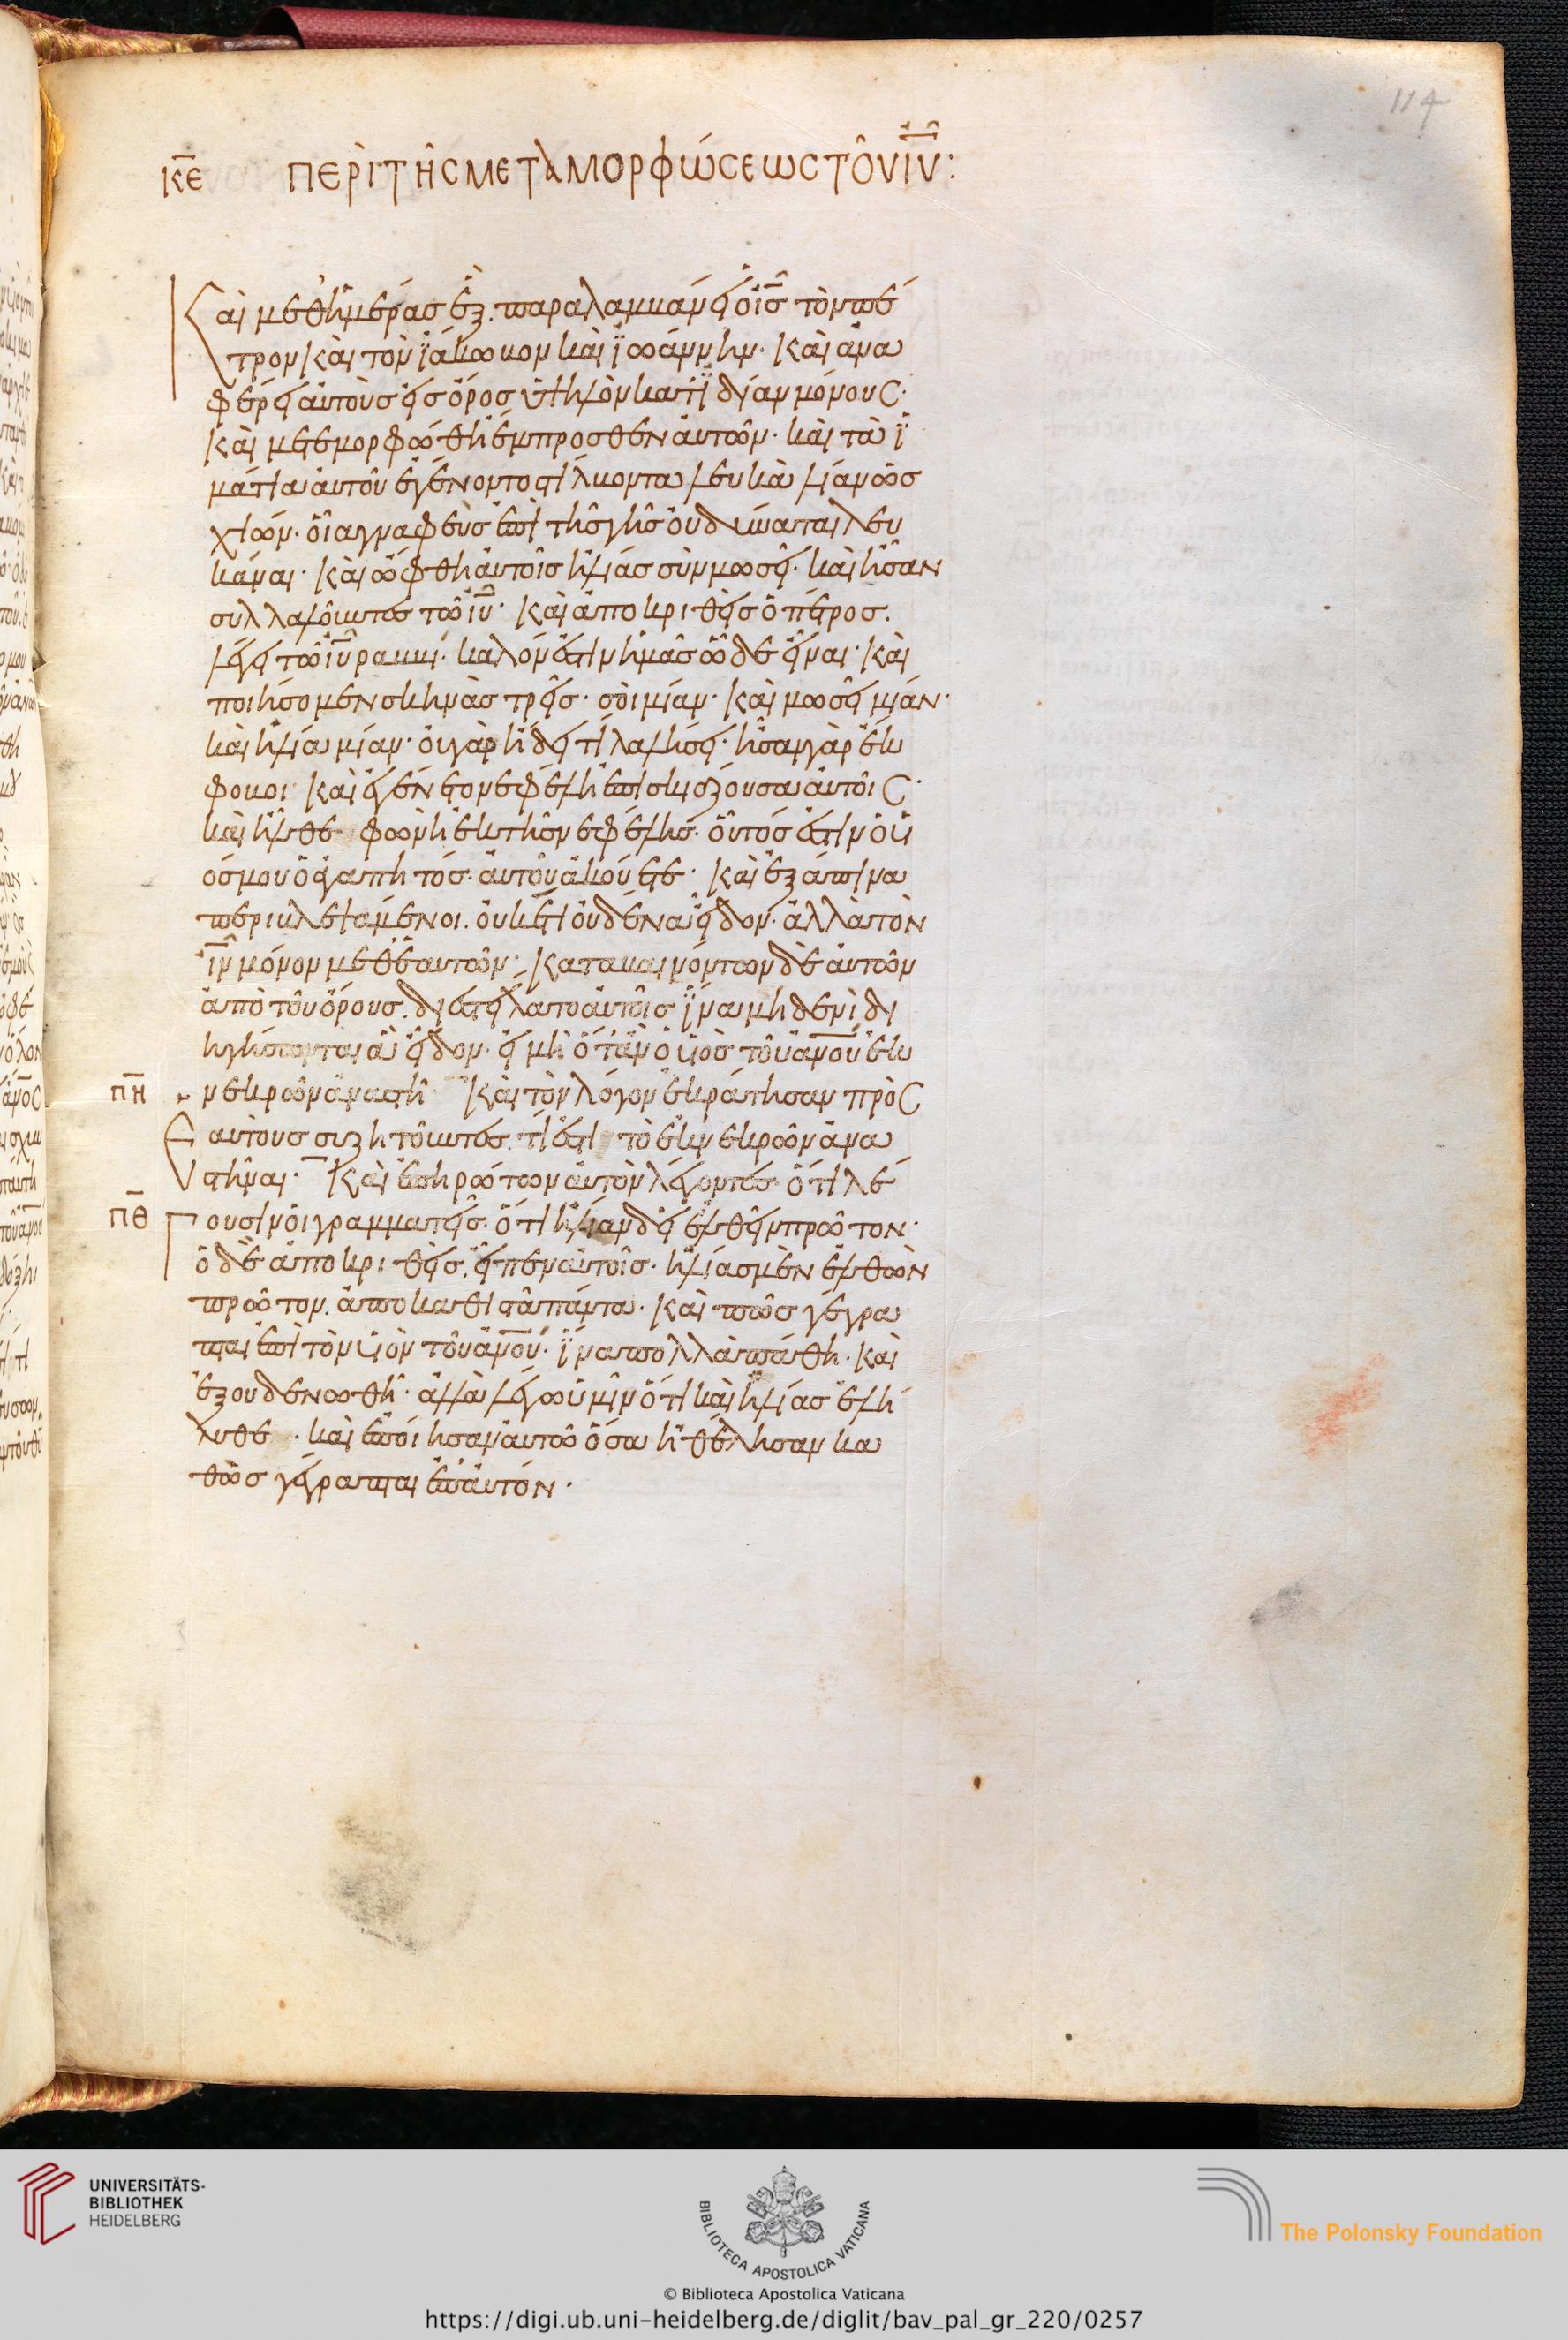 114
κε περὶ τῆς μεταμορφώσεως τοῦ ιυ:
Καὶ μεθ ἡμέρας ἓξ. παραλαμβάνει ὁ ις τὸν πέ
τρον καὶ τὸν ϊάκωβον καὶ ϊωάννην· καὶ ἀνα
φέρει αὐτοὺς εἰς ὄρος ὑψηλὸν κατ ϊδίαν μόνους·
καὶ μετεμορφώθη ἔμπροσθεν αὐτῶν· καὶ τὰ ϊ
μάτια αὐτοῦ ἐγένοντο στίλβοντα λευκὰ λίαν ὡς
χιών· οἷα γναφεὺς ἐπὶ τῆς γῆς οὐ δύναται λευ
κάναι· καὶ ὤφθη αὐτοῖς ἠλίας σὺν μωσεῖ· καὶ ἦσαν
συλλαλοῦντες τῶ ιυ· καὶ ἀποκριθεὶς ὁ πέτρος.
λέγει τῶ ιυ ραββί· καλόν ἐστιν ἡμᾶς ὧδε εἶναι· καὶ
ποιήσομεν σκηνὰς τρεῖς· σοὶ μίαν· καὶ μωσεῖ μίαν·
καὶ ἠλία μίαν· οὐ γὰρ ἤδει τί λαλήσει· ἦσαν γὰρ ἔκ
φοβοι· καὶ ἐγένετο νεφέλη ἐπισκιάζουσα αὐτοῖς·
καὶ ἦλθε φωνὴ ἐκ τῆς νεφέλης· οὗτός ἐστιν ὁ υἱ
ός μου ὁ ἀγαπητός· αὐτοῦ ἀκούετε· καὶ ἐξάπινα
περιβλεψάμενοι. οὐκέτι οὐδένα εἶδον· ἀλλὰ τὸν
ιν μόνον μεθ ἑαυτῶν· καταβαινόντων δὲ αὐτῶν
ἀπὸ τοῦ ὄρους. διεστείλατο αὐτοῖς ϊνα μηδενὶ δι
ηγήσονται ἃ εἶδον· εἰ μὴ ὅταν ὁ υἱὸς τοῦ ανου ἐκ
πη νεκρῶν ἀναστῆ· καὶ τὸν λόγον ἐκράτησαν πρὸς
ἑαυτοὺς συζητοῦντες. τί ἐστι τὸ ἐκ νεκρῶν ἀνα
στῆναι· καὶ ἐπηρώτων αὐτὸν λέγοντες ὅτι λέ
πθ γουσιν οἱ γραμματεῖς· ὅτι ἠλίαν δεῖ ἐλθεῖν πρῶτον·
ὁ δὲ ἀποκριθεὶς. εἶπεν αὐτοῖς· ἠλίας μὲν ἐλθὼν
πρῶτον. ἀποκαθιστᾶ πάντα· καὶ πῶς γέγρα
πται ἐπὶ τὸν υἱὸν τοῦ ανου· ϊνα πολλὰ πάθη· καὶ
ἐξουδενωθῆ· ἀλλὰ λέγω ὑμῖν ὅτι καὶ ἠλίας ἐλή
λυθε· καὶ ἐποίησαν αὐτῶ ὅσα ἠθέλησαν κα
θὼς γέγραπται ἐπ αὐτόν·
UNIVERSITÄTS-
BIBLIOTHEK
HEIDELBERG
BIBLIOTECA APOSTOLICA VATICANA
The Polonsky Foundation
© Biblioteca Apostolica Vaticana
https://digi.ub.uni-heidelberg.de/diglit/bav_pal_gr_220/0257